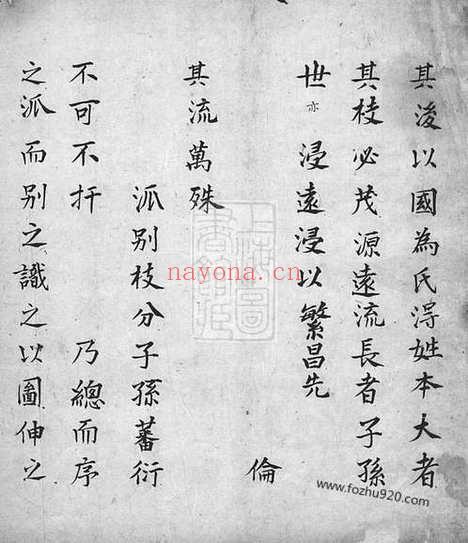 其後以國為氏淂姓本大者
其枝必茂源遠流長者子孫
世亦浸遠浸以繁昌先
倫
其流萬殊
派別枝分子孫蕃衍
不可不扞 乃總而序
之派而别之識之以圖伸之
nayona.cn
www.fozhu920.com